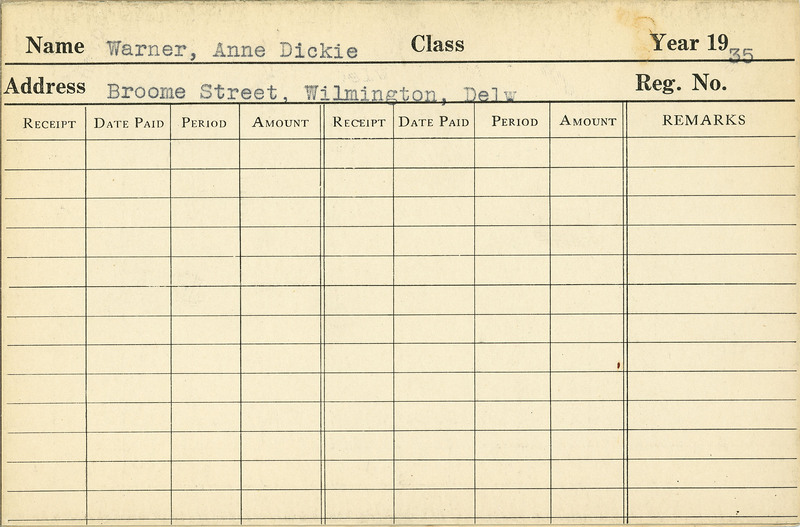 Name Warner, Anne Dickie Class Year 1935
Address Broome Street, Wilmington, Delw Reg. No.
RECEIPT DATE PAID PERIOD AMOUNT RECEIPT DATE PAID PERIOD AMOUNT REMARKS